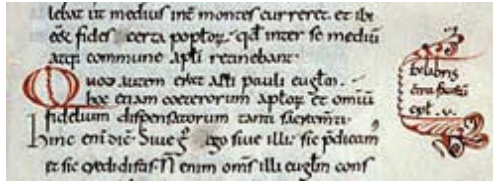 lebat ut medius int montes curreret. et ibi
eẽ fides certa poptoꝝ. qđ inter se mediũ
atqꝫ commune apti retinebant.
Quod autem erat apti pauli euglm.
hoc etiam coeterorum aptoꝝ et omniũ
fidelium dispensatorum tanti sacramti.
hinc eni dic̃. Siue g̃ ego siue illi. sic p̃dicam
et sic credidistis. Ñ enim om̃s illi euglm cons
ex libris